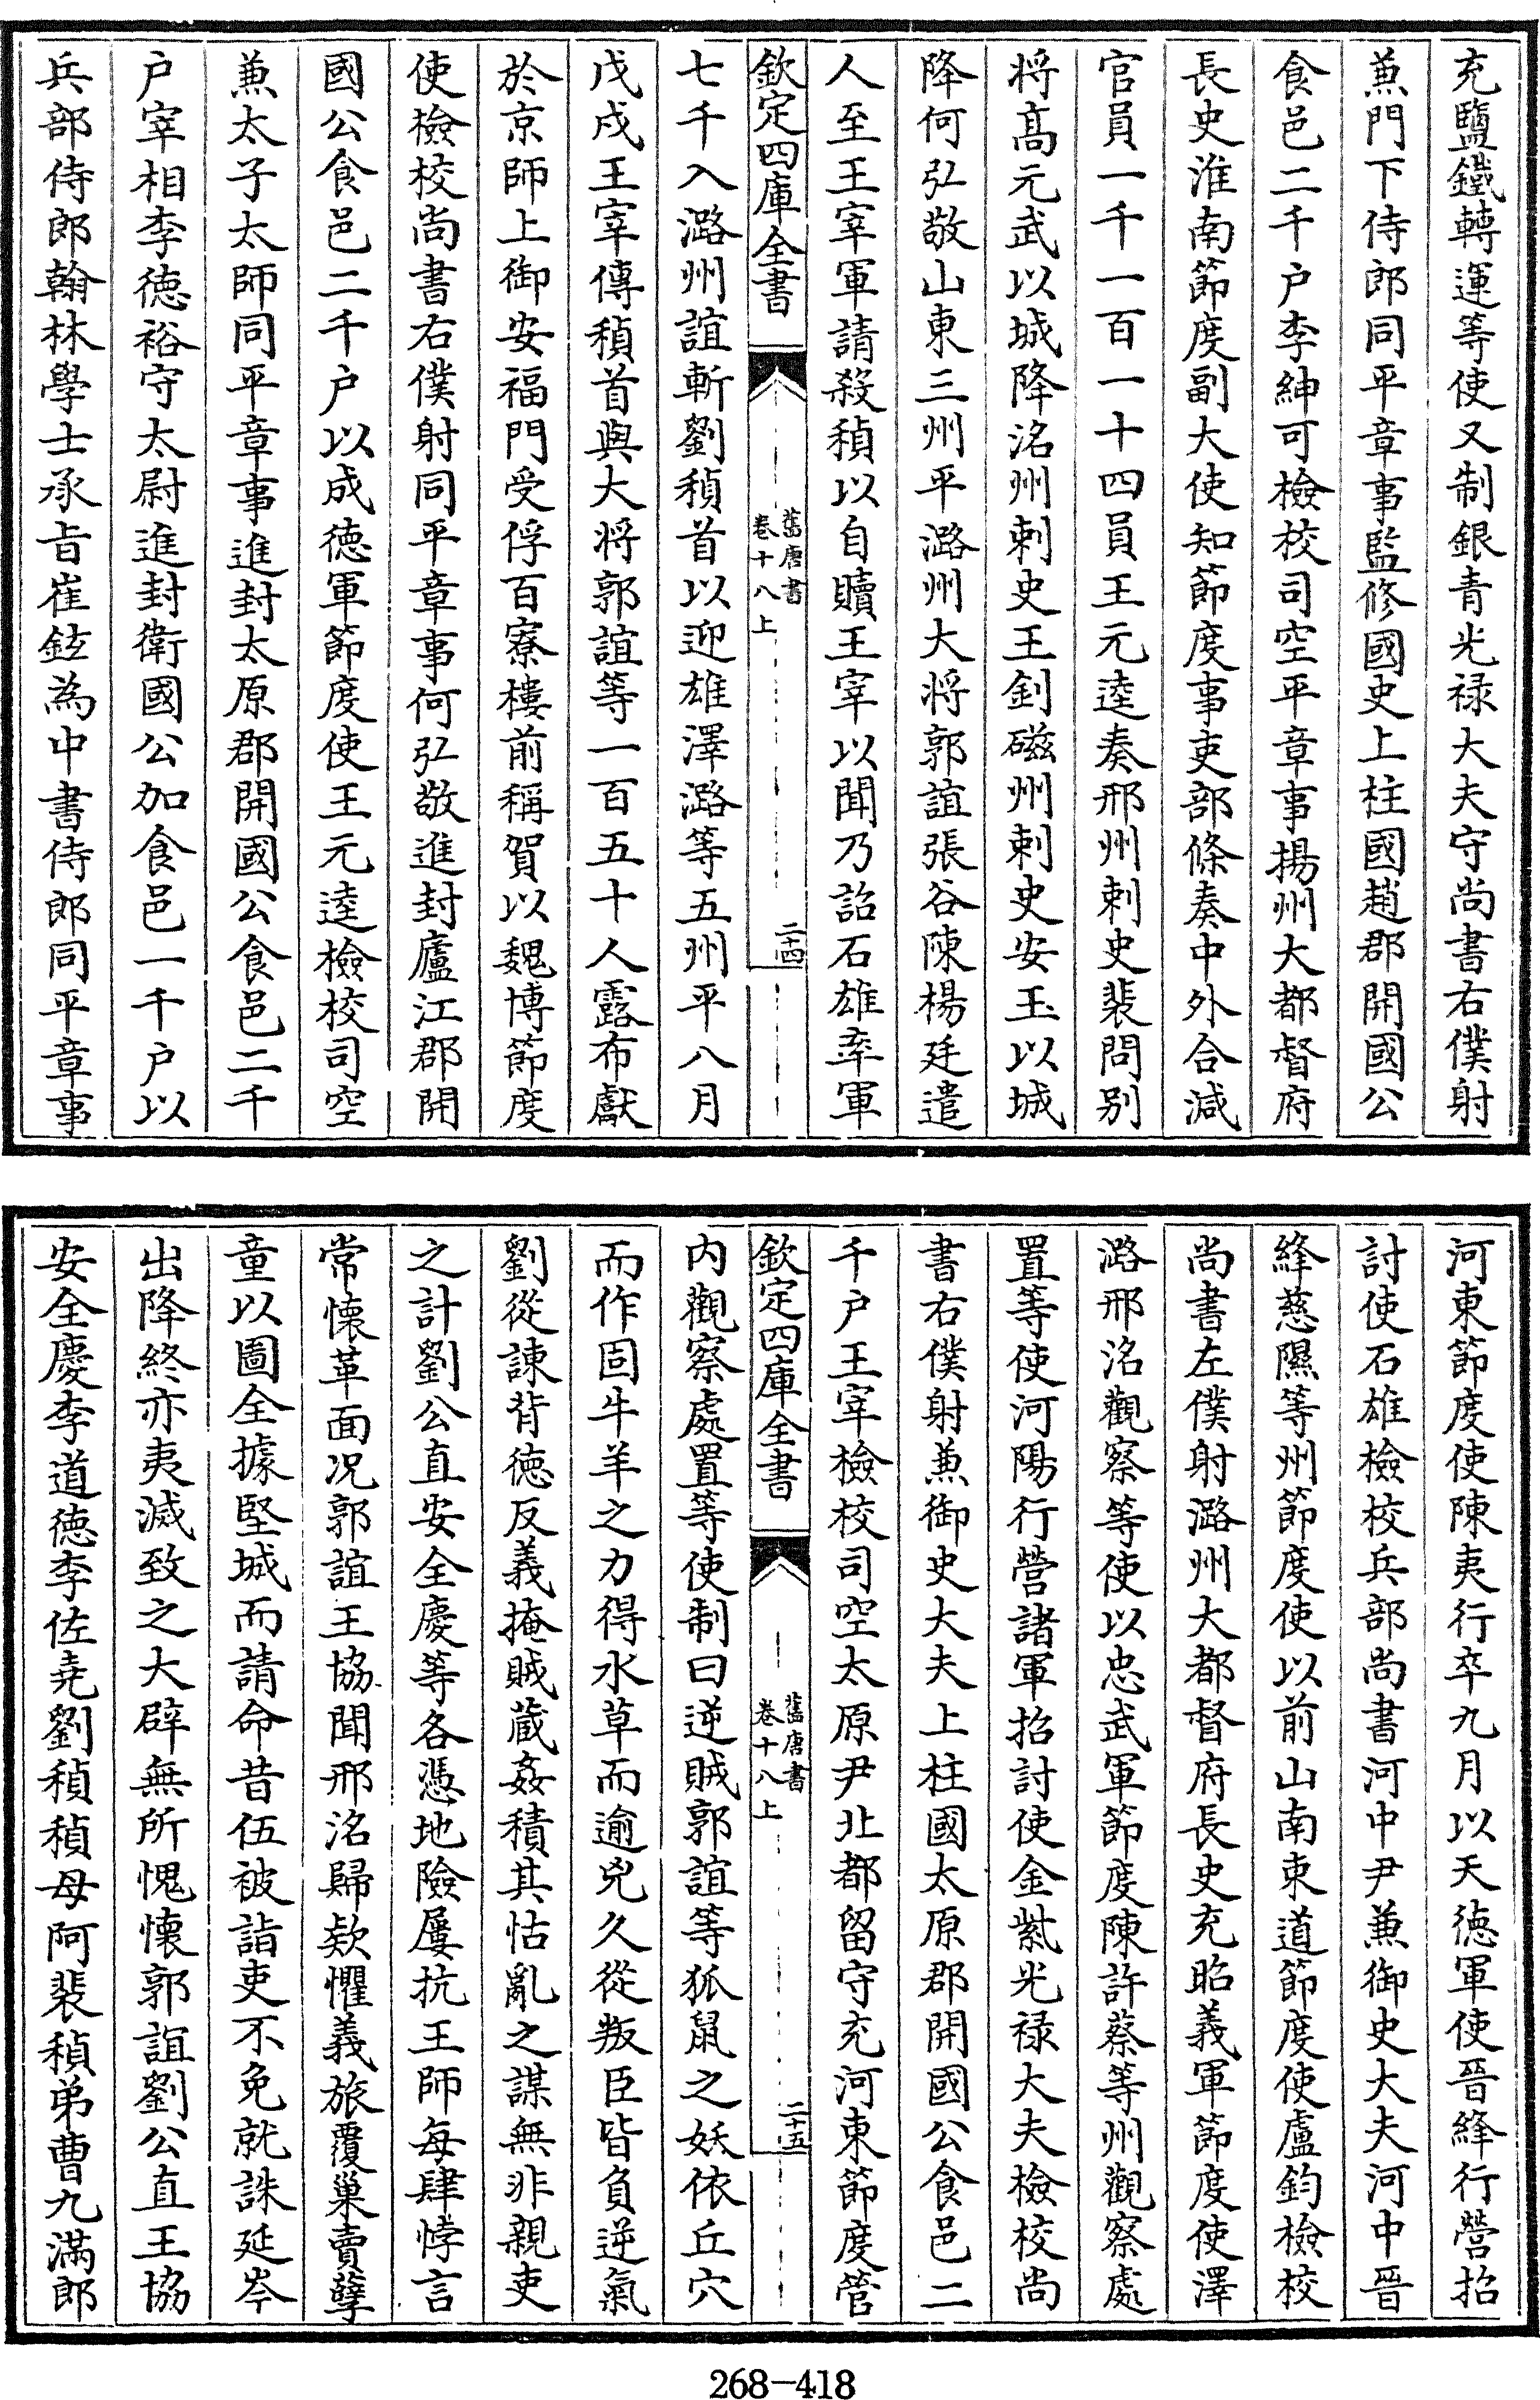 充鹽鐵轉運等使又制銀青光禄大夫守尚書右僕射
兼門下侍郎同平章事監修國史上柱國趙郡開國公
食邑二千户李紳可檢校司空平章事揚州大都督府
長史淮南節度副大使知節度事吏部條奏中外合減
官員一千一百一十四員王元逵奏邢州刺史裴問别
将髙元武以城降洺州刺史王釗磁州刺史安玉以城
降何弘敬山東三州平潞州大将郭誼張谷陳楊廷遣
人至王宰軍請殺稹以自贖王宰以聞乃詔石雄率軍
欽定四庫全書
舊唐書
卷十八上
二十四
七千入潞州誼斬劉稹首以迎雄澤潞等五州平八月
戊戌王宰傳稹首與大将郭誼等一百五十人露布獻
於京師上御安福門受俘百寮樓前稱賀以魏博節度
使檢校尚書右僕射同平章事何弘敬進封廬江郡開
國公食邑二千户以成徳軍節度使王元逵檢校司空
兼太子太師同平章事進封太原郡開國公食邑二千
户宰相李徳裕守太尉進封衛國公加食邑一千户以
兵部侍郎翰林學士承㫖崔鉉為中書侍郎同平章事
河東節度使陳夷行卒九月以天徳軍使晉絳行營招
討使石雄檢校兵部尚書河中尹兼御史大夫河中晉
絳慈隰等州節度使以前山南東道節度使盧鈞檢校
尚書左僕射潞州大都督府長史充昭義軍節度使澤
潞邢洺觀察等使以忠武軍節度陳許蔡等州觀察處
置等使河陽行營諸軍招討使金紫光禄大夫檢校尚
書右僕射兼御史大夫上柱國太原郡開國公食邑二
千户王宰檢校司空太原尹北都留守充河東節度管
欽定四庫全書
舊唐書
卷十八上
二十五
内觀察處置等使制曰逆賊郭誼等狐鼠之妖依丘穴
而作固牛羊之力得水草而逾兇久從叛臣皆負逆氣
劉從諫背徳反義掩賊藏姦積其怙亂之謀無非親吏
之計劉公直安全慶等各憑地險屢抗王師每肆悖言
常懷革面况郭誼王協聞邢洺歸欵懼義旅覆巢賣孽
童以圖全據堅城而請命昔伍被詣吏不免就誅延岑
出降終亦夷滅致之大辟無所愧懷郭誼劉公直王協
安全慶李道徳李佐堯劉稹稹母阿裴稹弟曹九滿郎
268-418